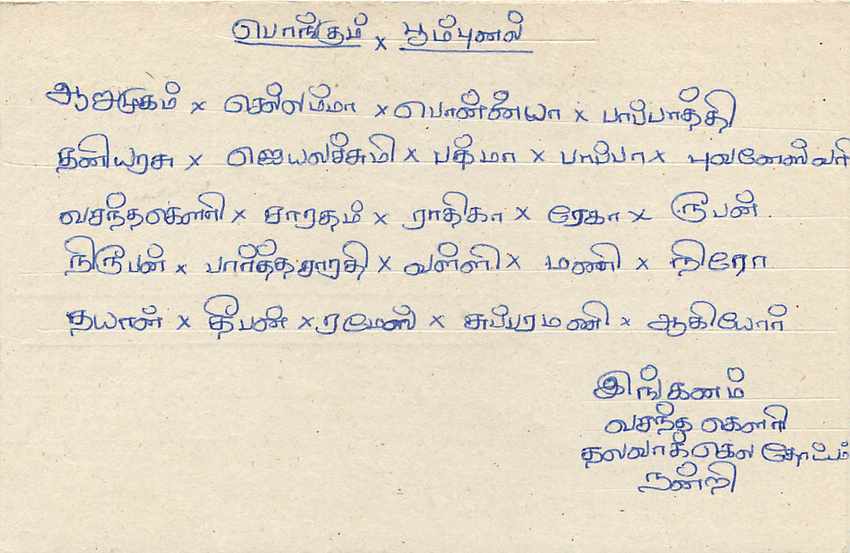 பொங்கும் x பூம்புனல்
ஆறுமுகம் x செல்லம்மா x பொன்னையா x பாப்பாத்தி
தனியரசு x ஜெயலச்சுமி x பத்மா x பாப்பா x புவனேஸ்வரி
வசந்தகௌரி x சாரதம் x ராதிகா x ரேகா x ரூபன்
நிரூபன் x பார்த்தசாரதி x வள்ளி x மணி x நிரோ
தயான் x தீபன் x ரமேஸ் x சுப்பரமணி x ஆகியோர்
இங்கனம்
வசந்த கௌரி
தலவாக்கெல தோட்டம்
நன்றி